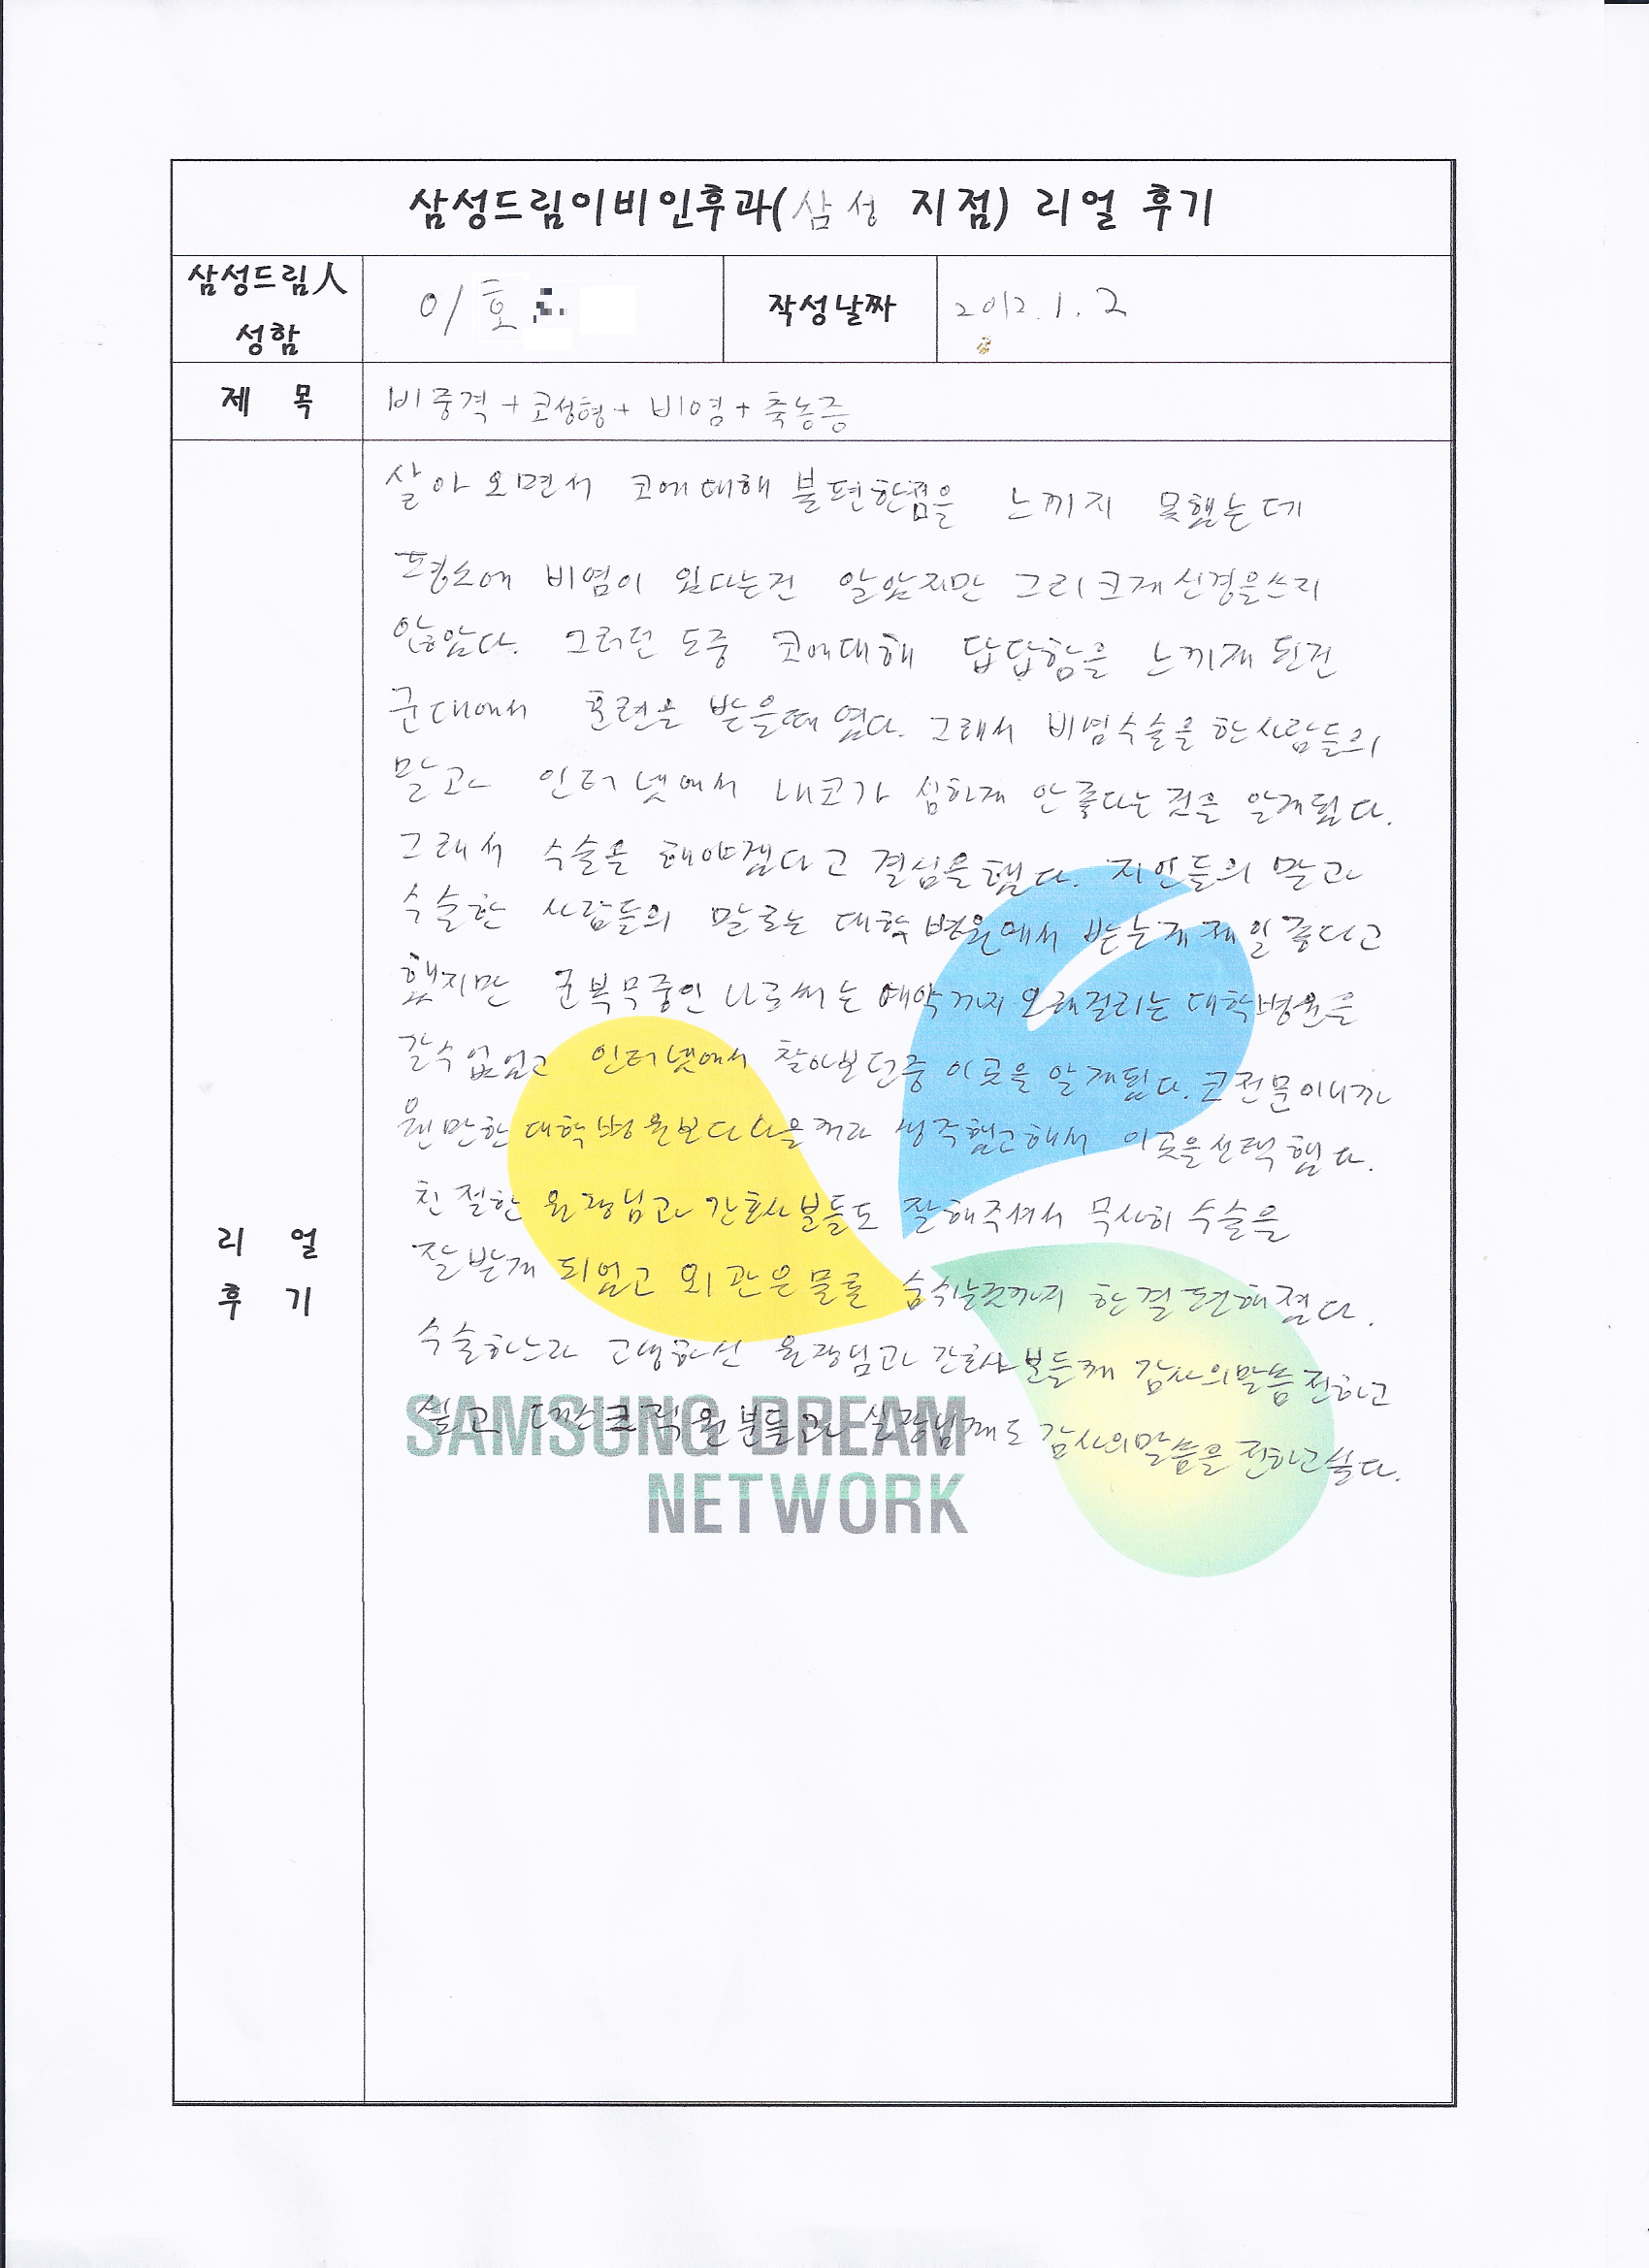 삼성드림이비인후과(삼성 지점) 리얼 후기
삼성드림人
성함
이호
작성날짜
2012.1.2
제 목
비중격+코성형+비염+축농증
살아오면서 코에대해 불편한점을 느끼지 못했는데
평소에 비염이 있다는건 알았지만 그리 크게 신경을쓰지
않았다. 그러던 도중 코에대해 답답함을 느끼게 된건
군대에서 훈련을 받을때 였다. 그래서 비염수술을 한사람들의
말과 인터넷에서 내코가 심하게 안좋다는것을 알게됬다.
그래서 수술을 해야겠다고 결심을했다. 지인들의 말과
수술한 사람들의 말로는 대학병원에서 받는게 제일좋다고
했지만 군복무중인 나로써는 예약까지 오래걸리는 대학병원을
갈수없었고 인터넷에서 찾아보던중 이곳을 알게됬다. 코전문이니까
왠만한 대학병원보다 나을꺼라 생각했고해서 이곳을선택했다.
친절한 원장님과 간호사분들도 잘해주셔서 무사히 수술을
잘받게 되었고 외관은 물론 숨쉬는것까지 한결 편해졌다.
수술하느라 고생하신 원장님과 간호사분들께 감사의말씀 전하고
싶고 데스크직원분들과 실장님께도 감사의말씀을 전하고싶다.
리 얼
후 기
SAMSUNG DREAM
NETWORK